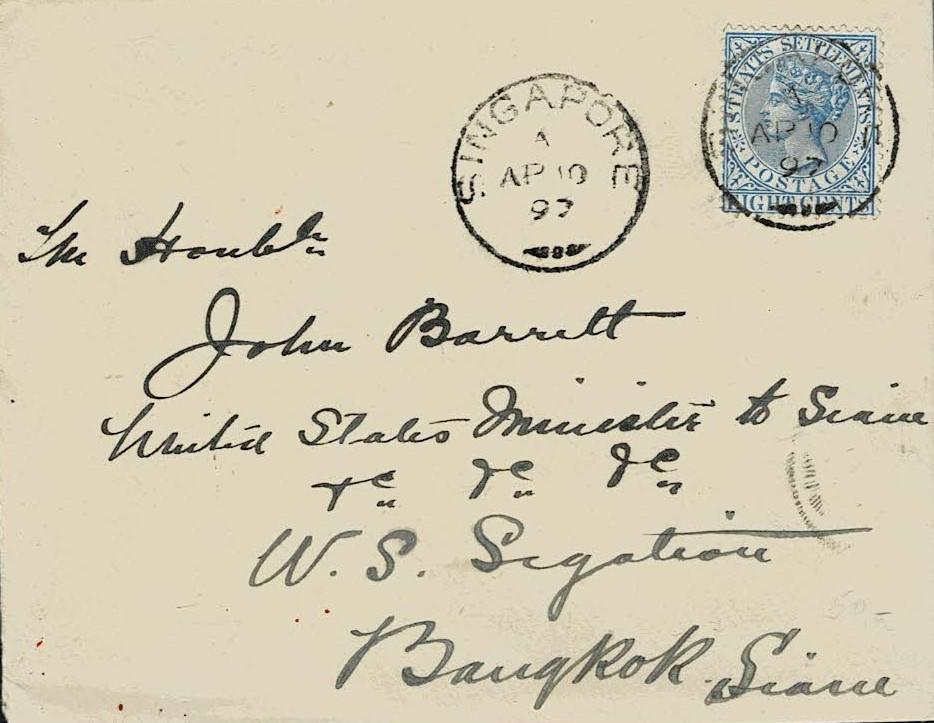 STRAITS SETTLEMENTS
POSTAGE
EIGHT CENTS
SINGAPORE
A
AP 10
97
A
AP 10
97
The Honble
John Barrett
United States Minister to Siam
&c &c &c
U.S. Legation
Bangkok Siam
50.–